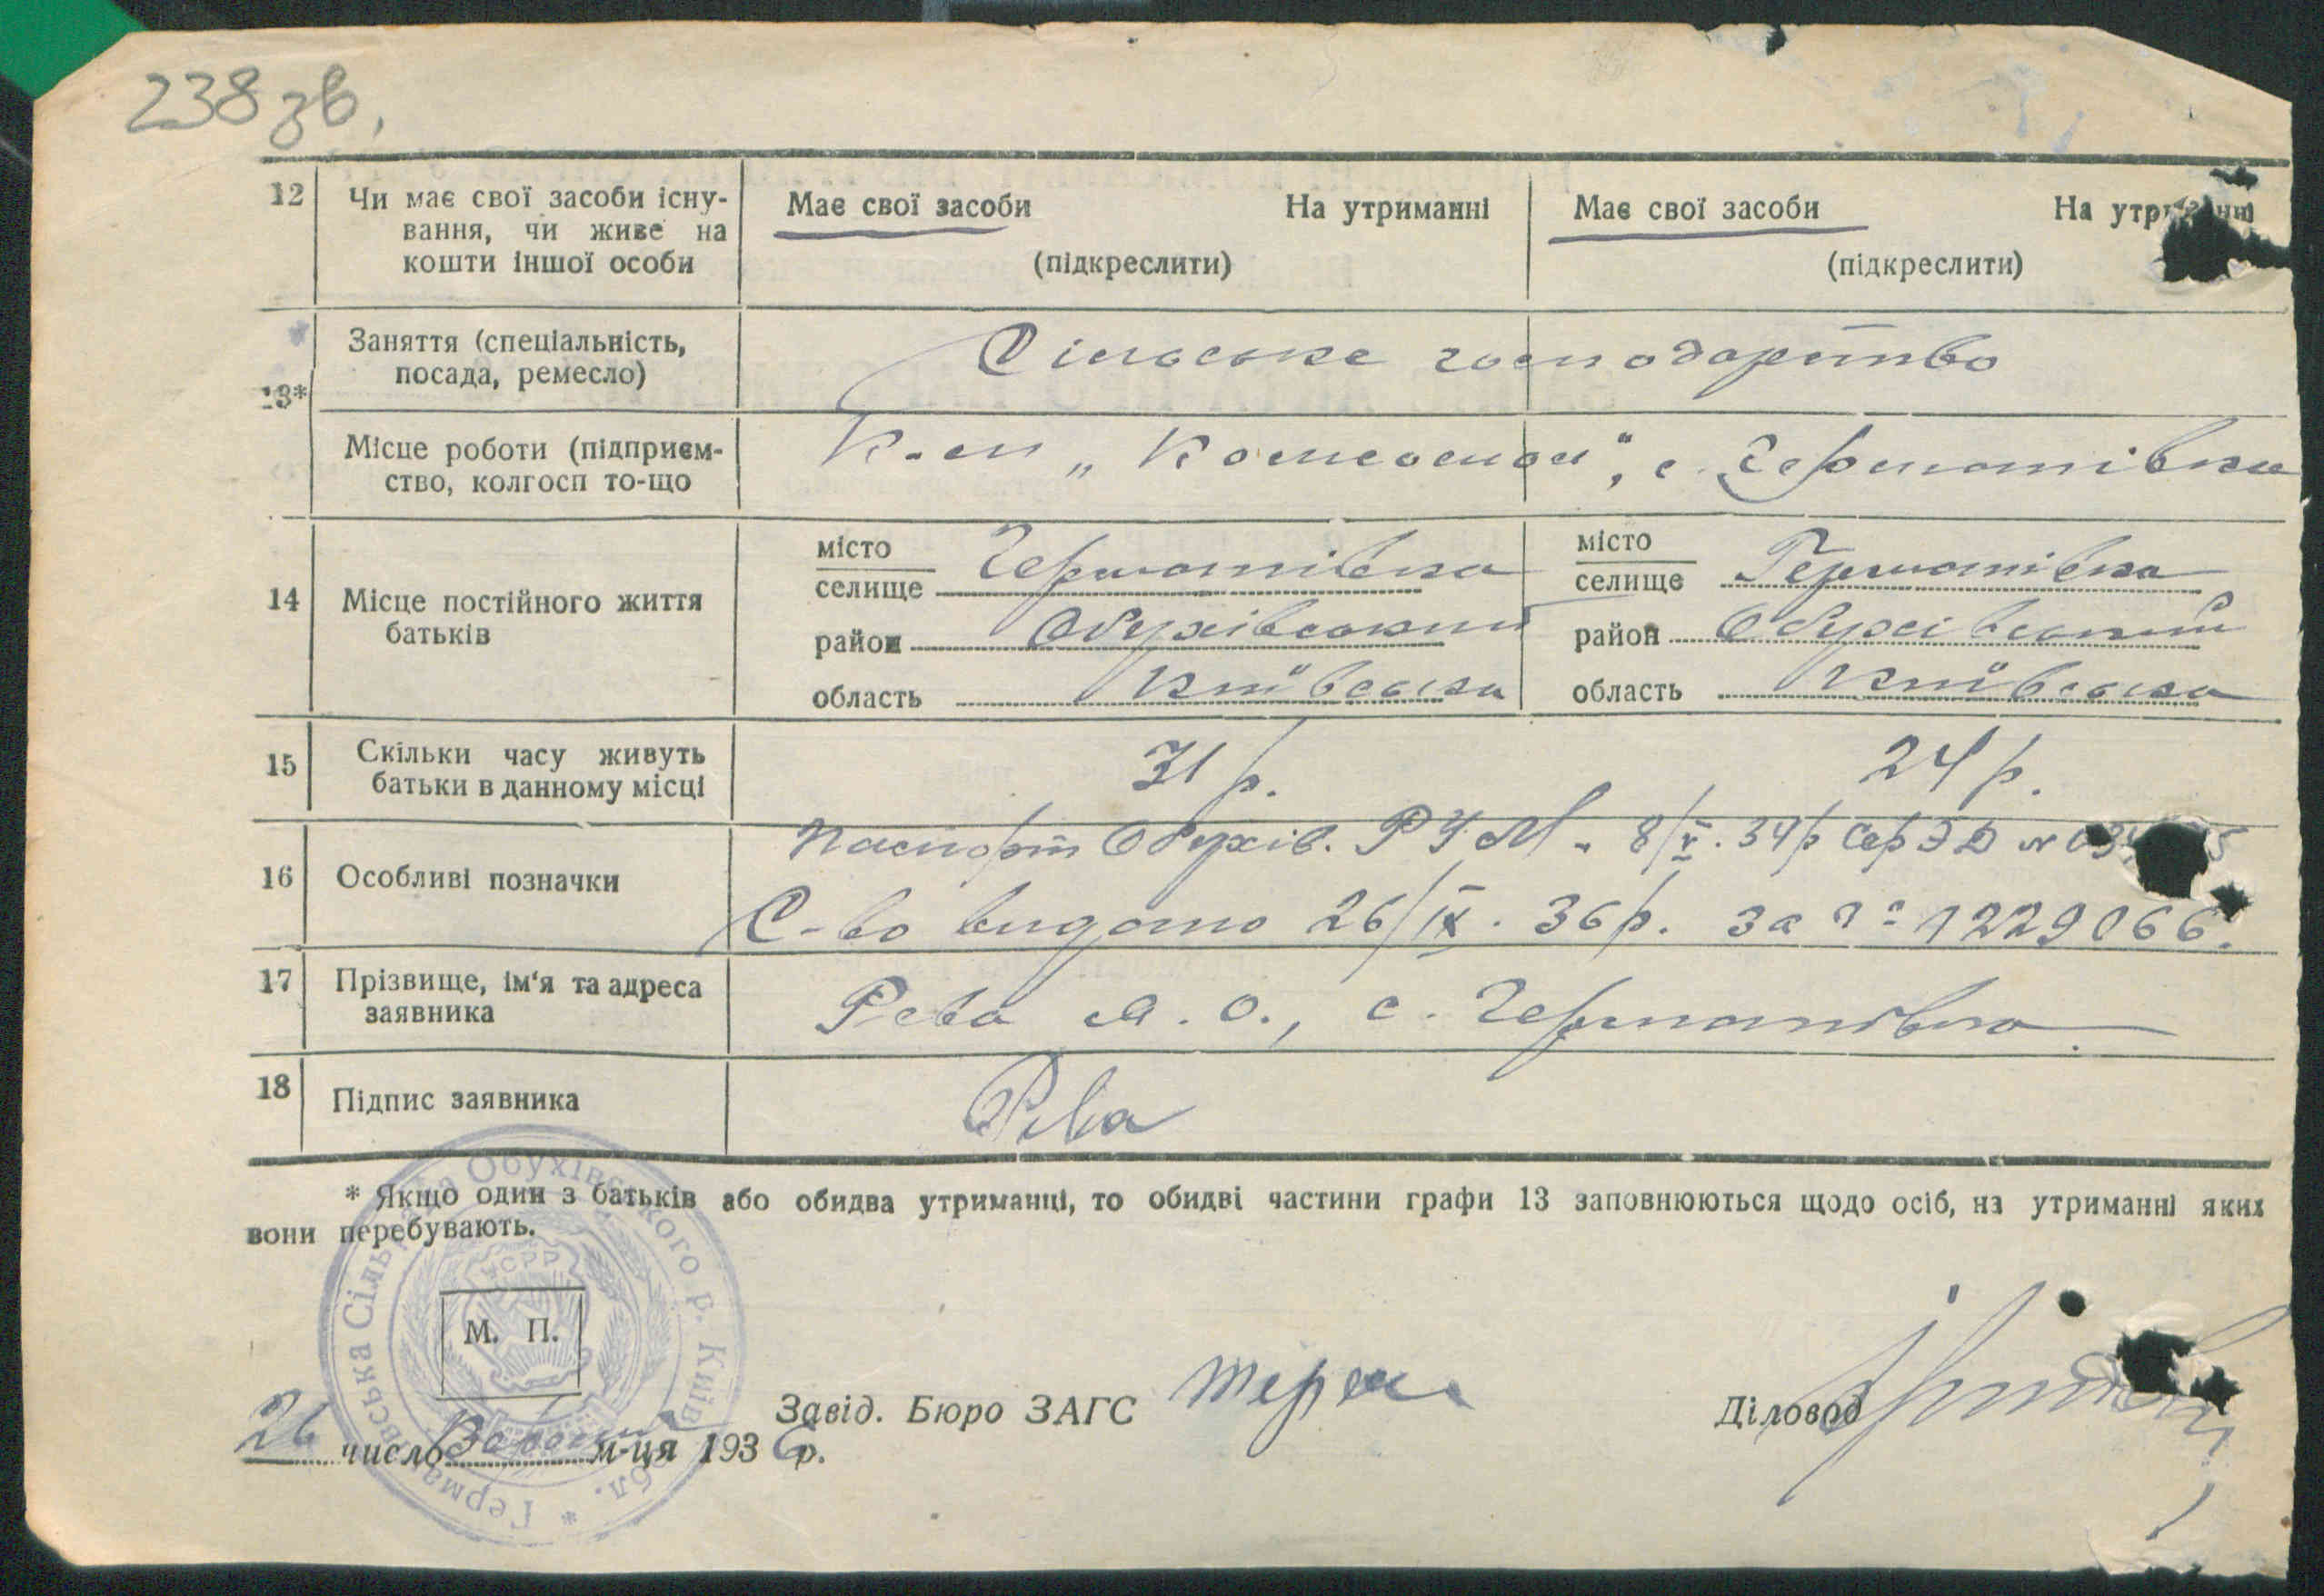 238 зв.
12 Чи має свої засоби існу- Має свої засоби На утриманні Має свої засоби На утриманні
вання, чи живе на
кошти іншої особи (підкреслити) (підкреслити)
Заняття (спеціальність, Сільське господарство
посада, ремесло)
13*
Місце роботи (підприєм- К-сп „Комсомол", с. Германівка
ство, колгосп то-що
місто Германівка місто Германівка
селище селище
14 Місце постійного життя
батьків район Обухівський район Обухівський
область Київська область Київська
15 Скільки часу живуть 31 р. 24 р.
батьки в данному місці
Паспорт Обухів. РУМ 8/V. 34р Сер ЭД №
16 Особливі позначки
С-во видано 26/IX. 36р. за № 1229066.
17 Прізвище, ім'я та адреса Рева Я. О., с. Германівка.
заявника
18 Підпис заявника Рева
* Якщо один з батьків або обидва утриманці, то обидві частини графи 13 заповнюються щодо осіб, на утриманні яких
вони перебувають.
Сільрада Обухівського р. Київ обл. * Герма вська
УСРР
М. П.
Завід. Бюро ЗАГС Діловод
26 число Вересня м-ця 1936 р.